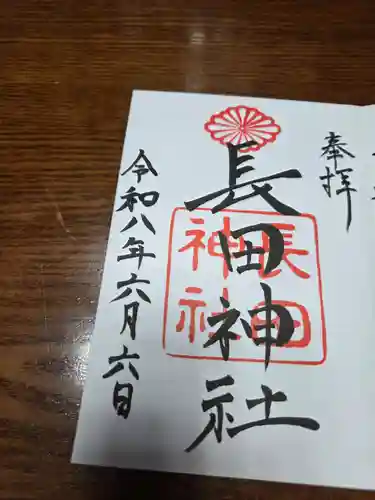 奉拝
長田神社
長田
神社
令和八年六月六日